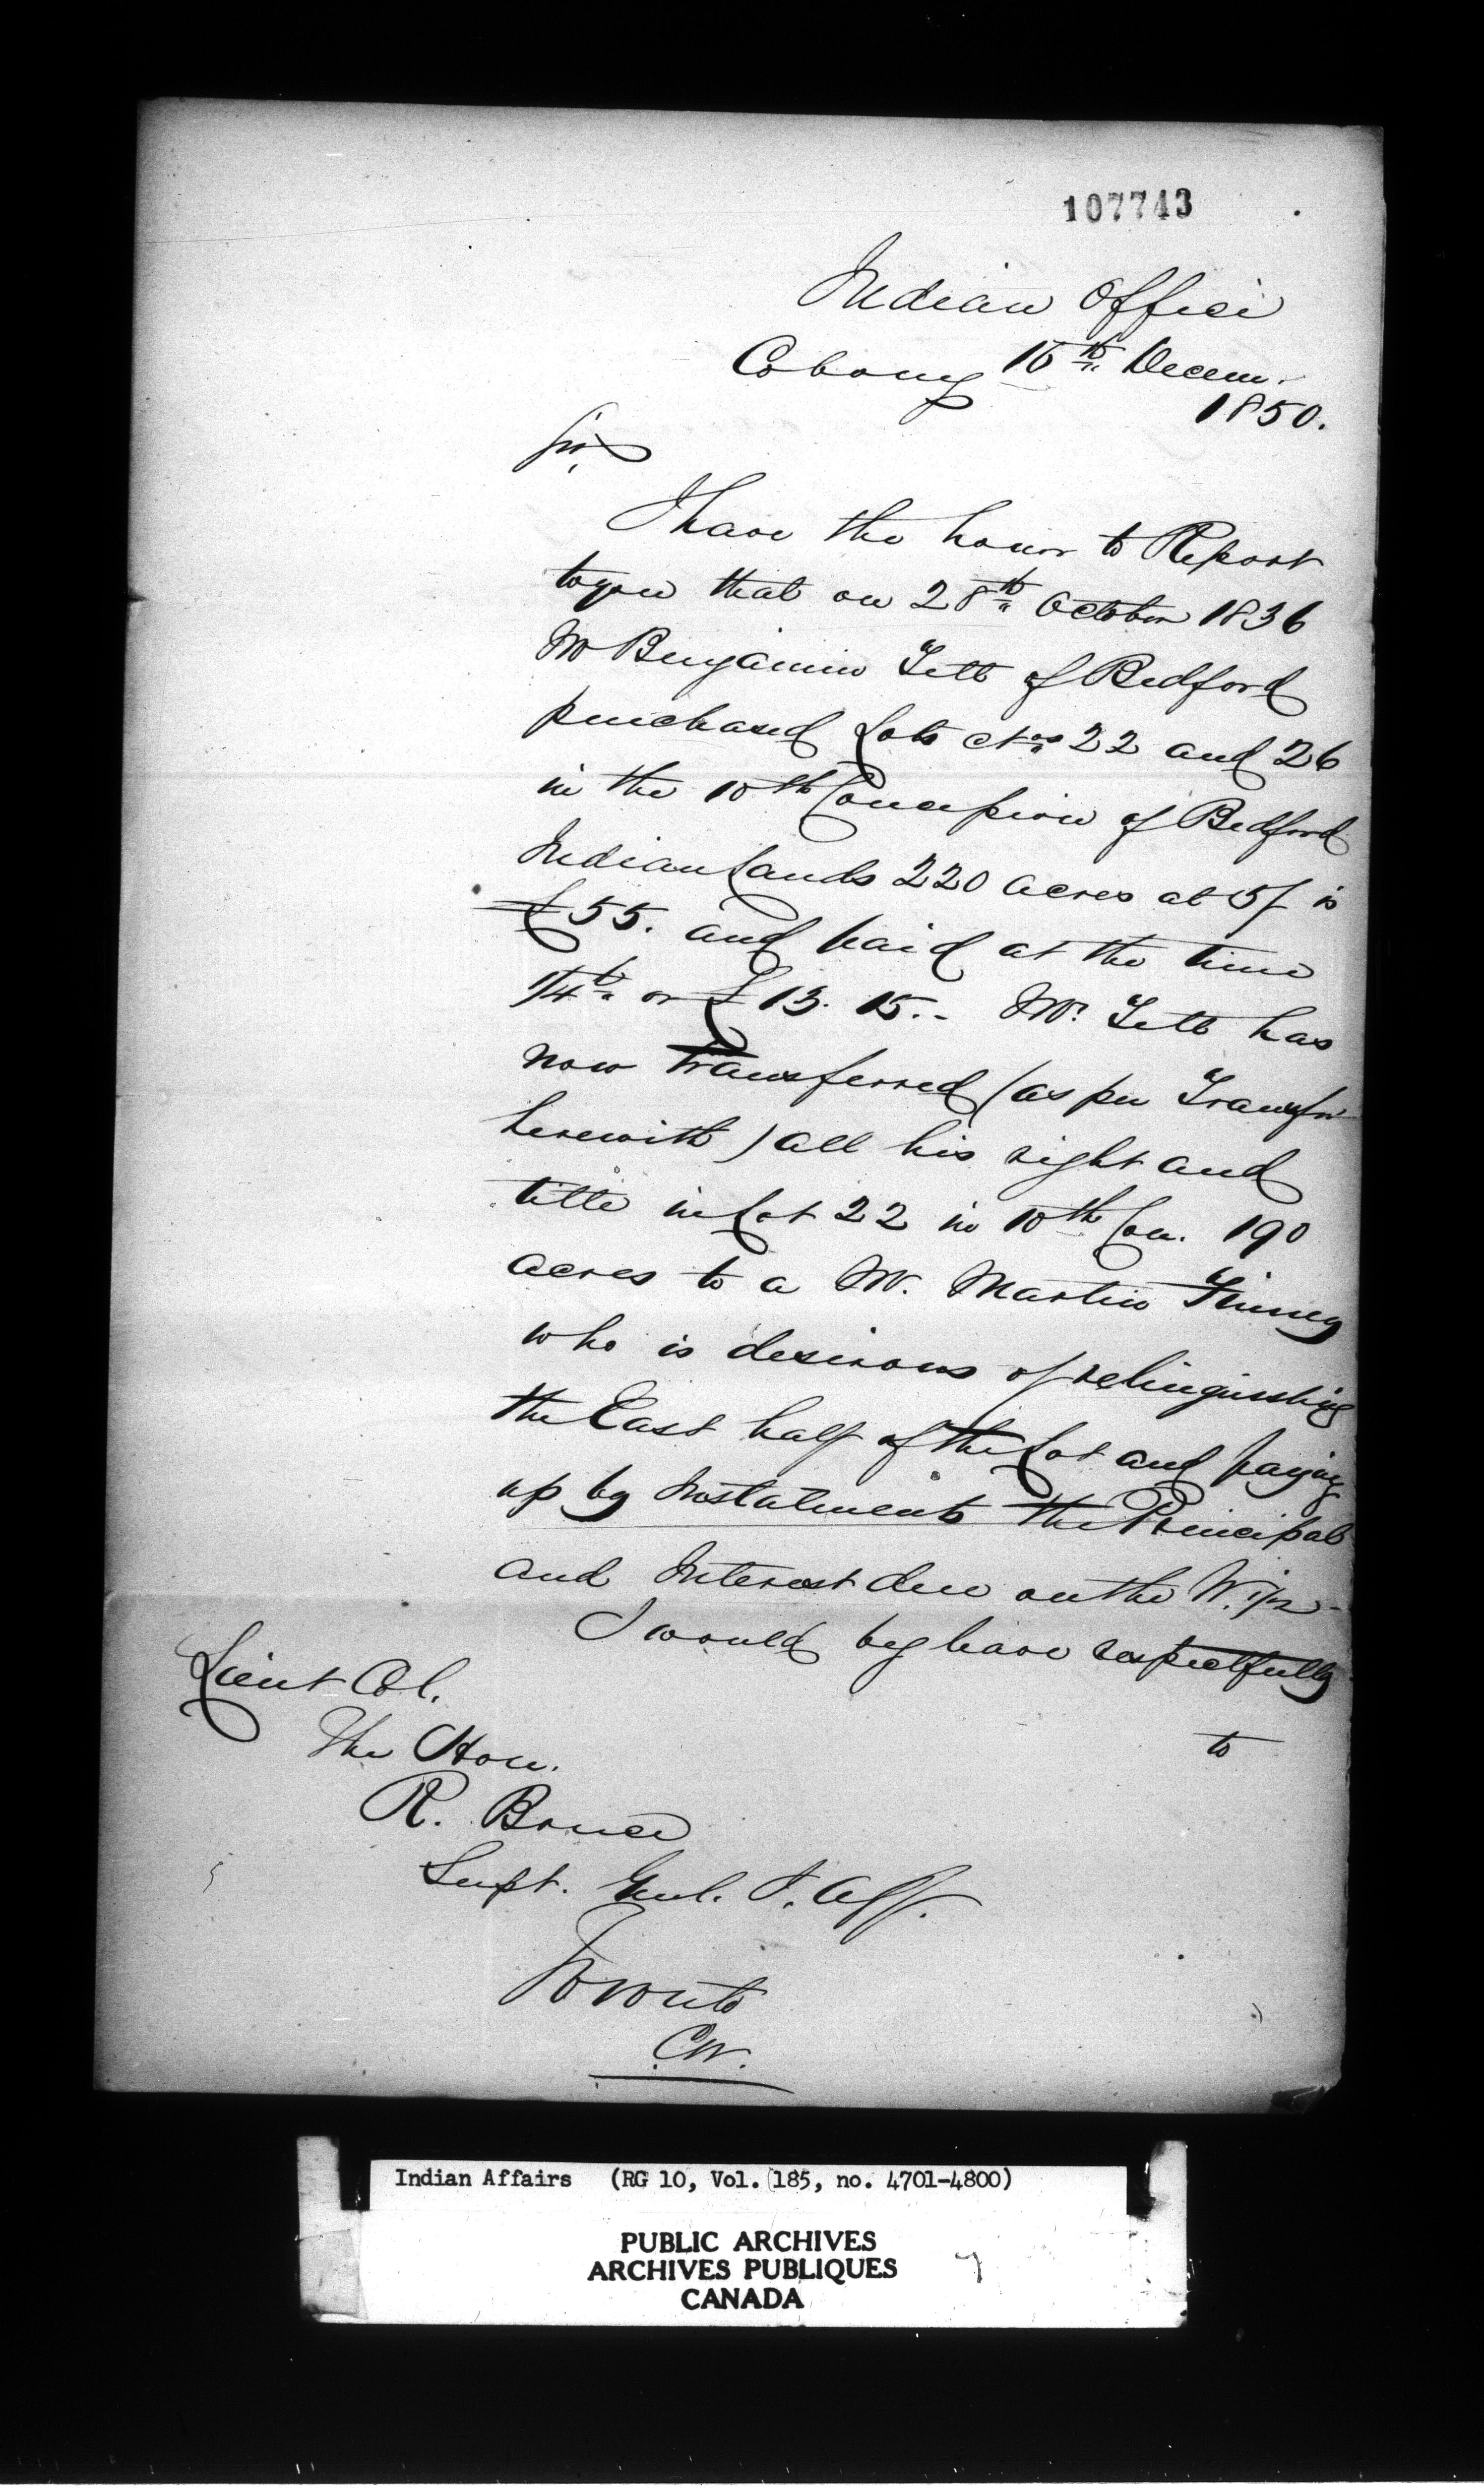 107743
Indian Office
Cobourg 16th Decem.
1850.
Sir,
I have the honor to Report
to you that on 28th October 1836
Mr Benjamin Tett of Bedford
purchased Lots Nos 22 and 26
in the 10th Concession of Bedford
Indian Lands 220 acres at 5/ is
£55. and paid at the time
1/4th or £13. 15. - Mr. Tett has
now transferred (as per Transfer
herewith) all his right and
title in Lot 22 in 10th Con. 190
acres to a Mr. Martin
who is desirous of relinquishing
the East half of the Lot and paying
up by Instalments the Principal
and Interest due on the W. 1/2 -
I would beg leave respectfully
to
Lieut Col.
The Hon.
R. Bruce
Supt. Genl. I. Aff.
Toronto
C.W.
Indian Affairs (RG 10, Vol. 185, no. 4701-4800)
PUBLIC ARCHIVES
ARCHIVES PUBLIQUES
CANADA